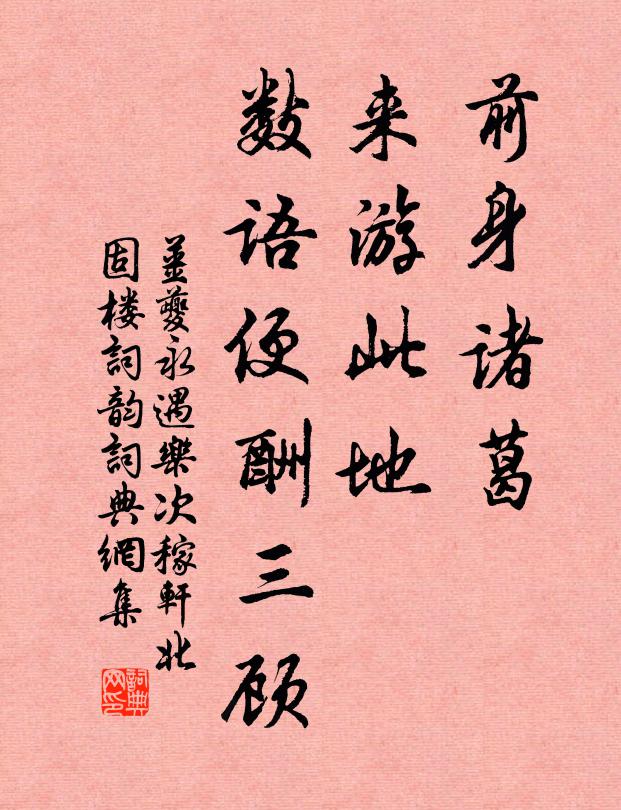 前身诸葛
来游此地
数语便酬三顾
姜夔永遇樂次稼軒北
固楼詞韵詞典網集
詞典
网印